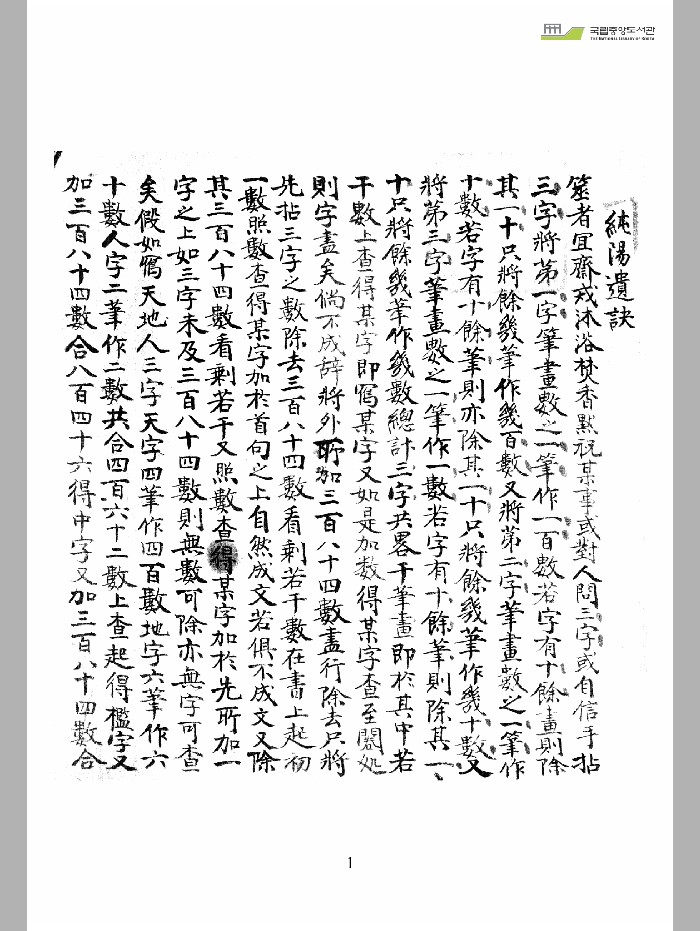 국립중앙도서관
THE NATIONAL LIBRARY OF KOREA
純陽遺訣
筮者宜齋戒沐浴焚香默祝某事或對人問三字或自信手拈
三字將第一字筆畫數之一筆作一百數若字有十餘畫則除
其一十只將餘幾筆作幾百數又將第二字筆畫數之一筆作
十數若字有十餘筆則亦除其一十只將餘幾筆作幾十數又
將第三字筆畫數之一筆作一數若字有十餘筆則除其一
十只將餘幾筆作幾數總計三字共畧干筆畫即於其中若
干數上查得某字即寫某字又如是加数得某字查至闕処
則字盡矣倘不成辞將外所加三百八十四數盡行除去只將
先拈三字之數除去三百八十四數看剩若干數在書上起初
一數照數查得某字加於首句之上自然成文若俱不成文又除
其三百八十四數看剩若干又照數查得某字加於先所加一
字之上如三字未及三百八十四數則無數可除亦無字可查
矣假如寫天地人三字天字四筆作四百數地字六筆作六
十數人字二筆作二數共合四百六十二數上查起得檻字又
加三百八十四數合八百四十六得中字又加三百八十四數合
1